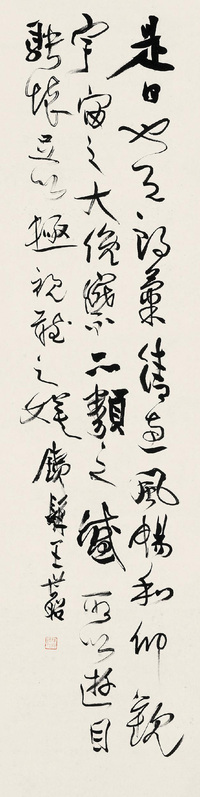 是日也天朗氣清惠風暢和仰觀
宇宙之大俯察品類之盛所以遊目
騁懷足以極視聽之娛 鐵髯王世昭